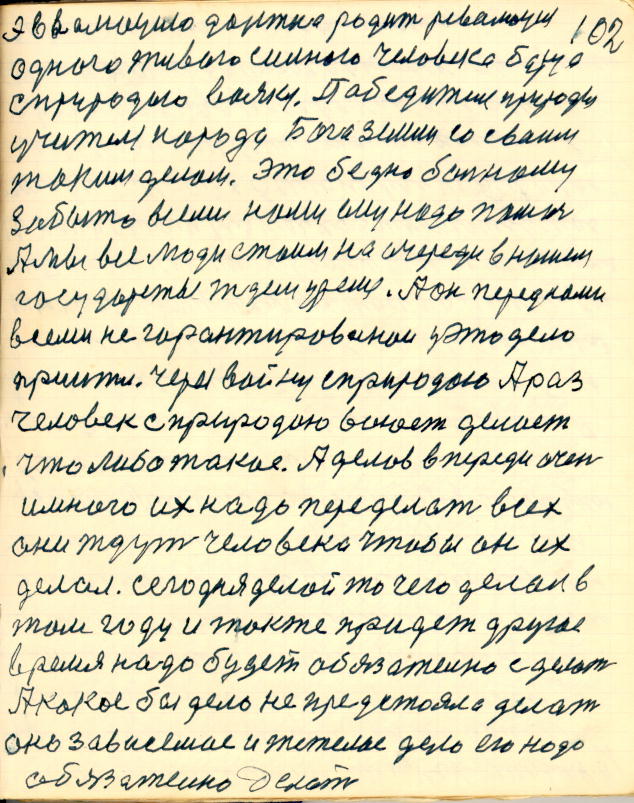 102
эвволюцию должна родит революция
одного живого сильного человека борца
с природою вояку. Победителя природы
учителя народу Бога земли со своим
таким делом. Это бедно больному
забыто всеми нами ему надо помоч
А мы все люди стоим на очереди в нашем
государстве ждем время. А он перед нами
всеми не гарантированои у это дело
притти. Через войну с природою А раз
человек с природою воюет делает
что либо такое. А делов впереди очен
имного их надо переделат всех
они ждут человека чтобы он их
делал. Сегодня делай то чего делал в
том году и также придет другое
время надо будет обязателно сделат
А какое бы дело не предстояло делат
оно зависемае и тежелае дело его надо
обязателно Делат